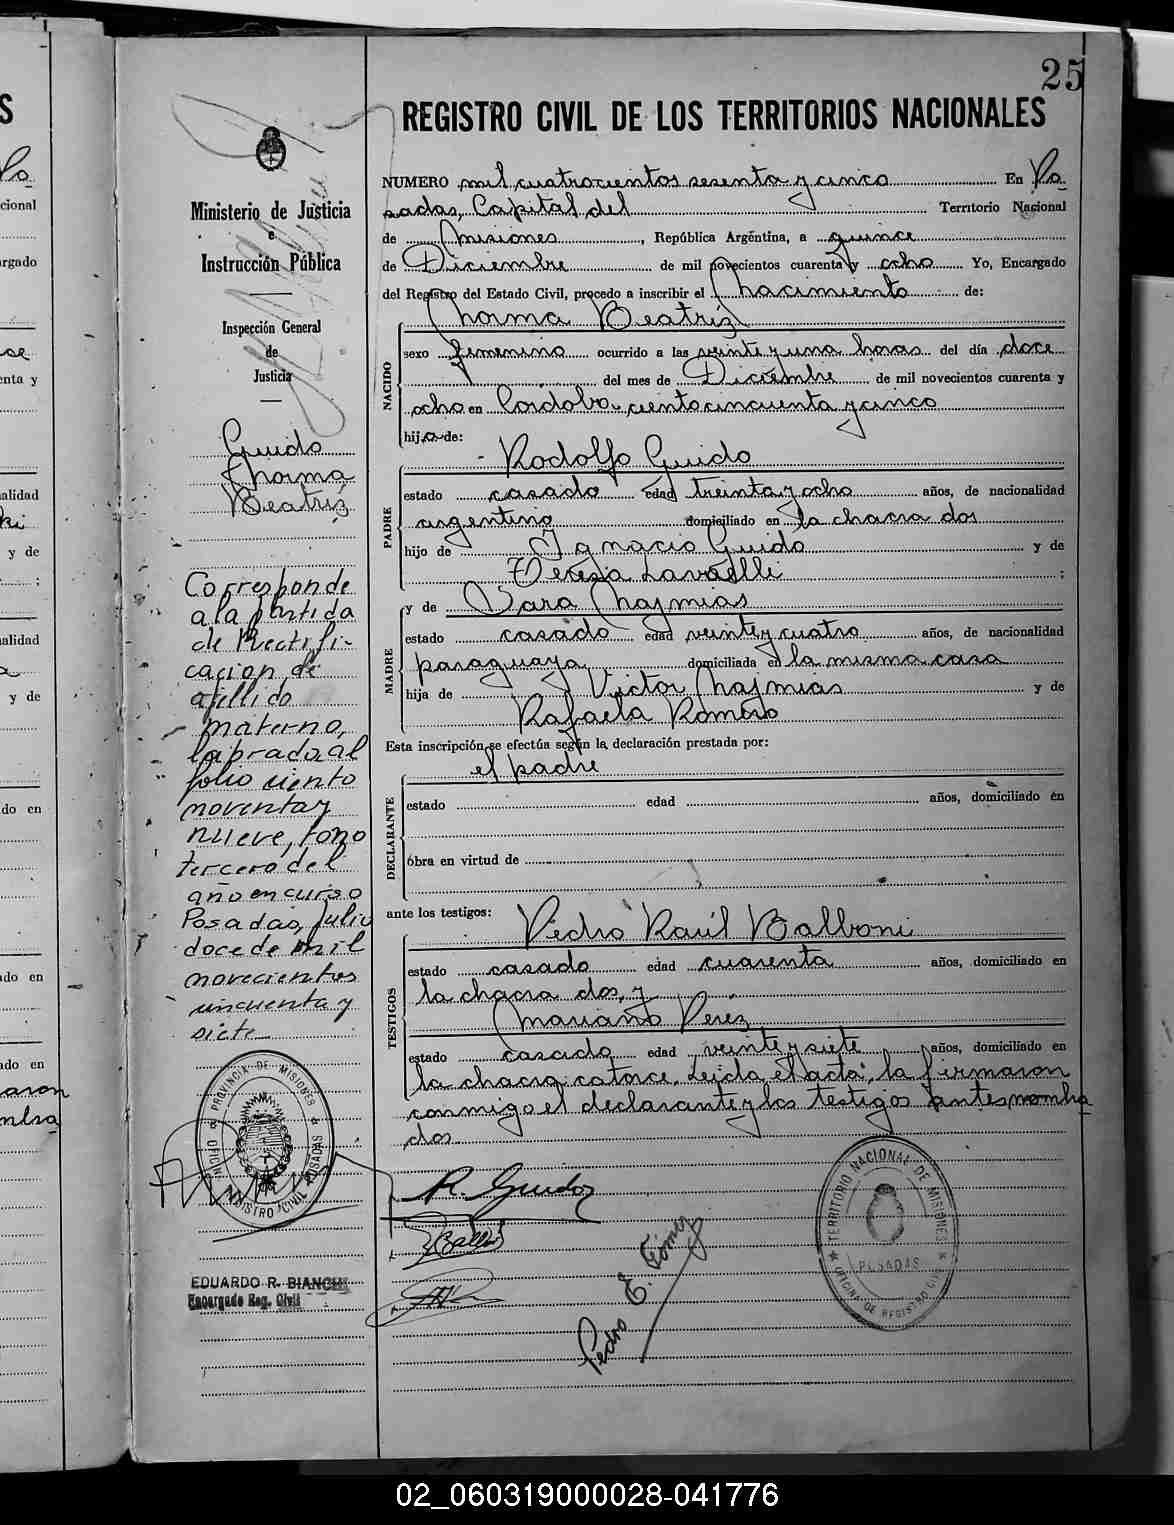 25
REGISTRO CIVIL DE LOS TERRITORIOS NACIONALES
Ministerio de Justicia
e
Instrucción Pública
Inspección General
de
Justicia
Guido
Norma
Beatriz
Corresponde
a la partida
de Rectifi-
cacion de
apellido
materno,
labrada al
folio ciento
noventa y
nueve, tomo
tercero del
año en curso
Posadas, Julio
doce de mil
novecientos
cincuenta y
siete
PROVINCIA DE MISIONES
OFICINA REGISTRO CIVIL POSADAS
EDUARDO R. BIANCHI
Encargado Reg. Civil
NUMERO mil cuatrocientos sesenta y cinco En Po
sadas, Capital del Territorio Nacional
de Misiones, República Argéntina, a quince
de Diciembre de mil novecientos cuarenta y ocho Yo, Encargado
del Registro del Estado Civil, procedo a inscribir el Nacimiento de:
NACIDO
Norma Beatriz
sexo femenino ocurrido a las veinte y una horas del día doce
del mes de Diciembre de mil novecientos cuarenta y
ocho en Córdoba ciento cincuenta y cinco
hija de:
PADRE
Rodolfo Guido
estado casado edad treinta y ocho años, de nacionalidad
argentino domiciliado en la chacra dos
hijo de Ignacio Guido y de
Teresa Lavaelli ;
MADRE
y de Sara Najmias
estado casado edad veinte y cuatro años, de nacionalidad
paraguaya domiciliada en la misma casa
hija de Victor Najmias y de
Rafaela Romero
Esta inscripción se efectúa según la declaración prestada por:
el padre
DECLARANTE
estado edad años, domiciliado en
óbra en virtud de
ante los testigos:
TESTIGOS
Pedro Raúl Balboni
estado casado edad cuarenta años, domiciliado en
la chacra dos, y
Mariano Perez
estado casado edad veinte y siete años, domiciliado en
la chacra catorce. Leida el acta, la firmaron
conmigo el declarante y los testigos antes nombra
dos
R. Guido
Pedro E. Gómez
TERRITORIO NACIONAL DE MISIONES
POSADAS
OFICINA DE REGISTRO CIVIL
02_060319000028-041776